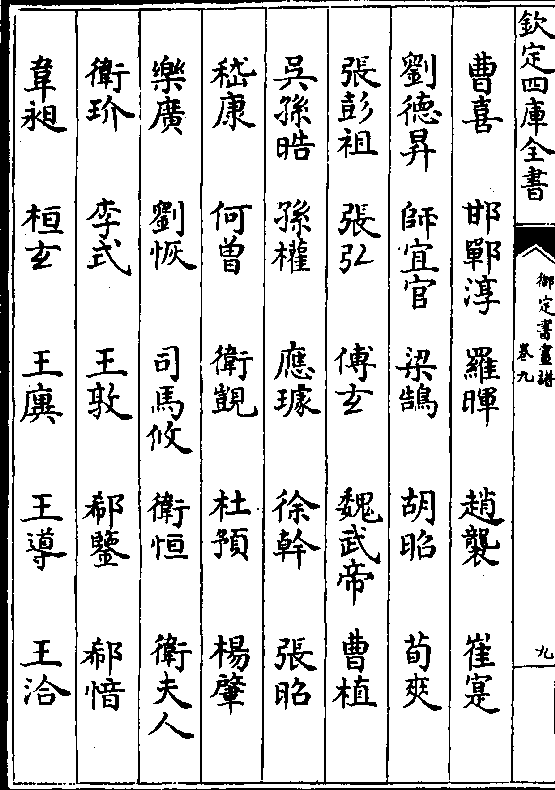 欽定四庫全書
御定書畫譜
卷九
九
曹喜 邯鄲淳 羅暉 趙襲 崔寔
劉德昇 師宜官 梁鵠 胡昭 荀爽
張彭祖 張弘 傅玄 魏武帝 曹植
吳孫晧 孫權 應璩 徐幹 張昭
嵇康 何曾 衛覬 杜預 楊肇
樂廣 劉恢 司馬攸 衛恒 衛夫人
衛玠 李式 王敦 郗鑒 郗愔
韋昶 桓玄 王廙 王導 王洽